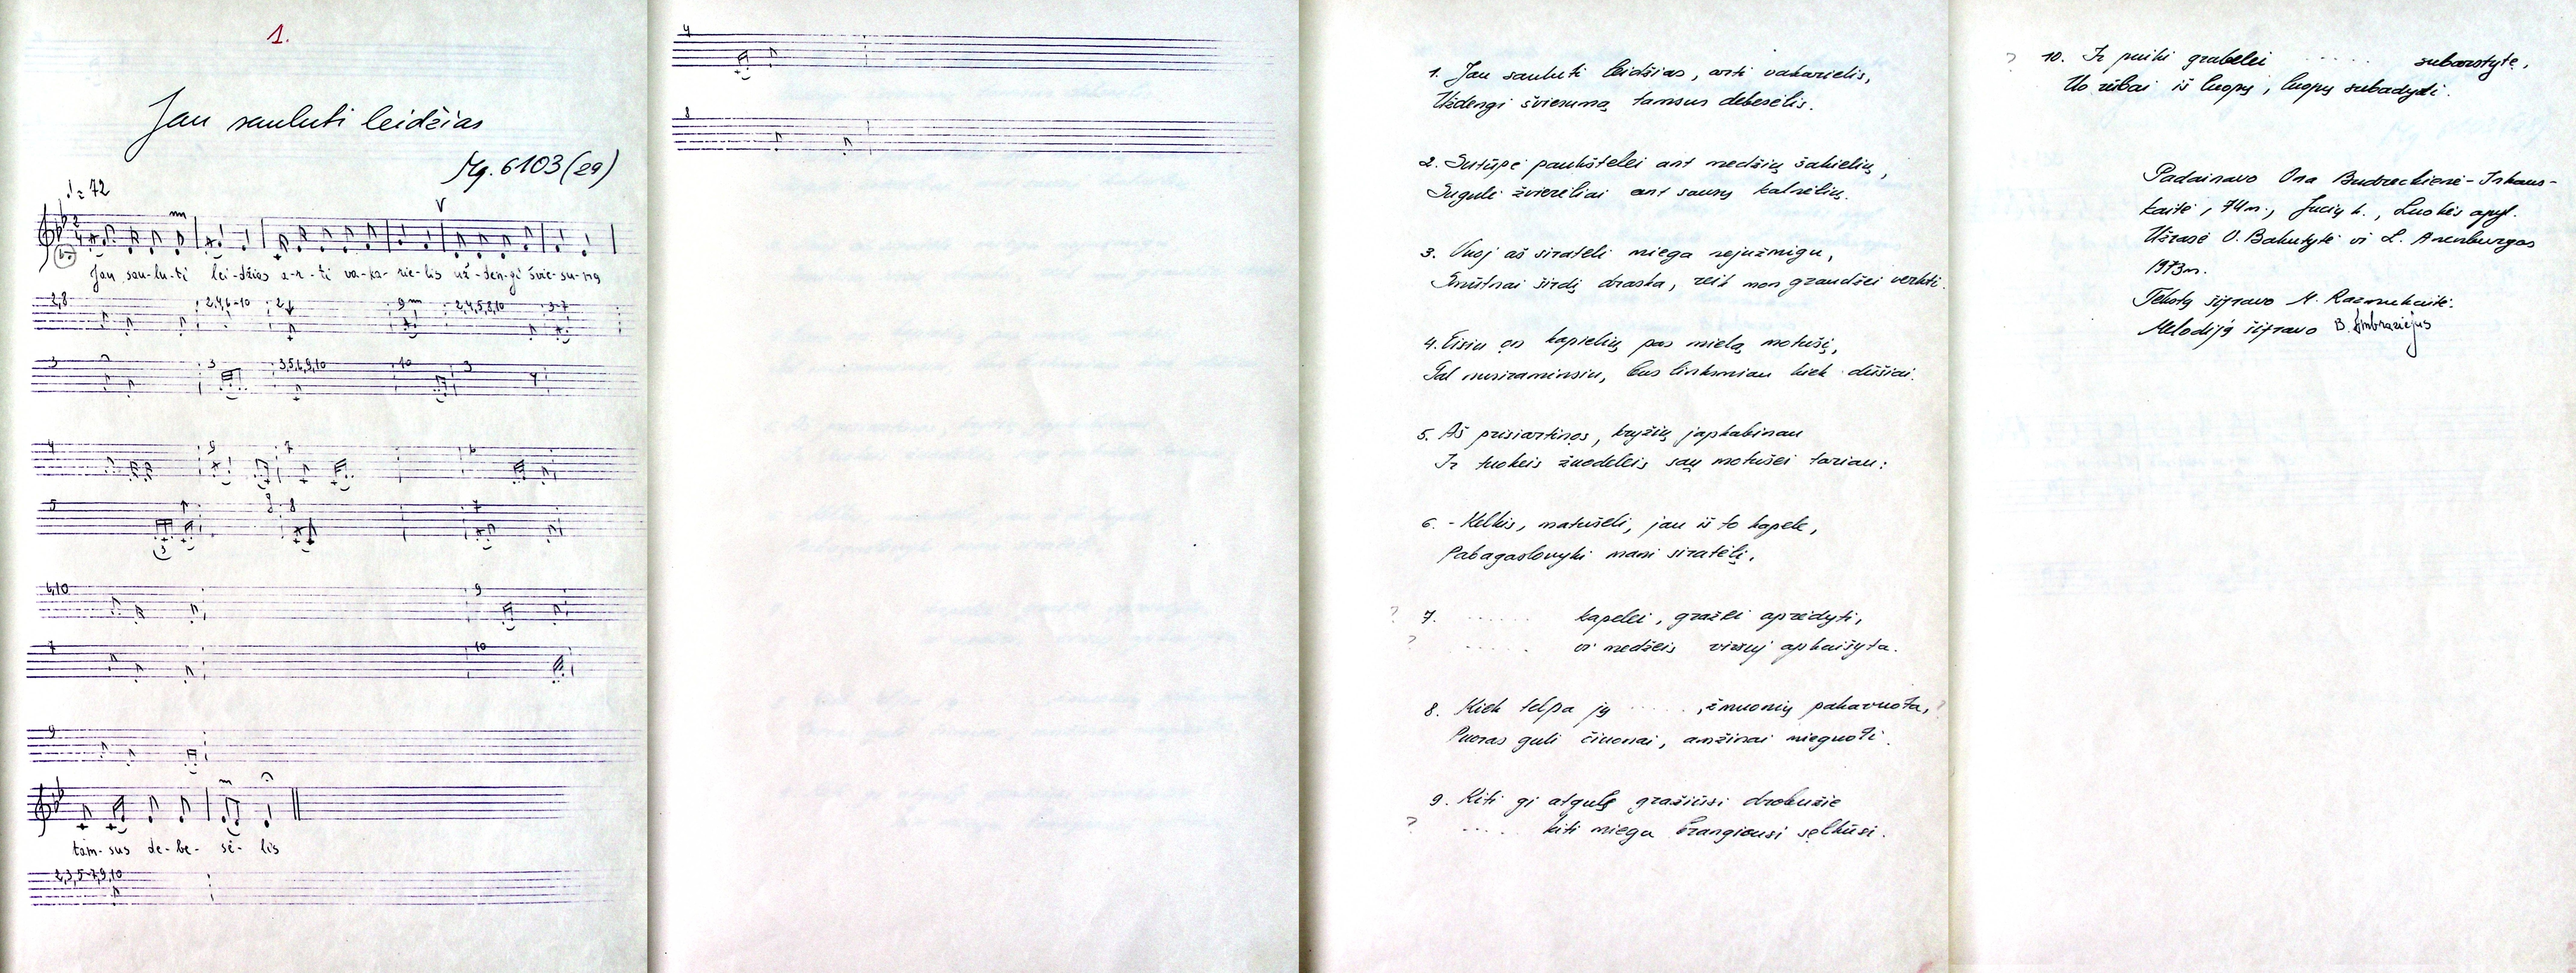 1.
Jau sauluti leidžias
Mg. 6103 (29)
♩ = 72
Jau sau-lu-ti lei-džias a-r-ti va-ka-rie-lis už-den-gi švie-su-ma
2,8 2,4,6-10 2 9 2,4,5,8,10 3-7
3 3 3,5,6,9,10 10 3
4 9 7 6
5 8 7
6,10 9
7 10
9
tam-sus de-be-sė-lis
2,3,5-7,9,10
4
8
1. Jau sauluti leidžias, arti vakarielis,
Uždengi šviesumą tamsus debesėlis.
2. Sutūpė paukštelei ant medžių šakielių,
Suguli žvierėliai ant sausų kalnelių.
3. Vuoj aš siratėli miega nejužmigu,
Smūtnai širdį draska, reik man graudžei verkti.
4. Eisiu on kapielių pas mielą motušį,
Gal nusiraminsiu, bus linksmiau kiek dūšiai.
5. Aš prisiartinos, kryžių japkabinau
Ir tuokeis žuodeleis saų motušei tariau:
6. - Kelkis, matušeli, jau iš to kapele,
Pabagaslovyki mani siratėlį.
? 7. ...... kapelei, gražei aprėdyti,
? ...... vi medžeis viršuj apkaišyta.
8. Kiek telpa jų ....., žmuonių pakavuota, ?
Puoras guli čiuonai, amžinai mieguoti.
9. Kiti gi atgulę gražiūsi drobužie
? .... kiti miega brangiausi šelkūsi.
? 10. Ir puiki grabelei ..... subarstyte,
Uo rūbai iš kuopų, kuopų subadyti.
Padainavo Ona Budreckienė-Irkaus-
kaitė, 74 m., Jucių k., Luokės apyl.
Užrašė V. Bakutytė ir L. Anenburgas
1973 m.
Tekstą šifravo M. Razmukaitė.
Melodiją šifravo B. Ambraziejus